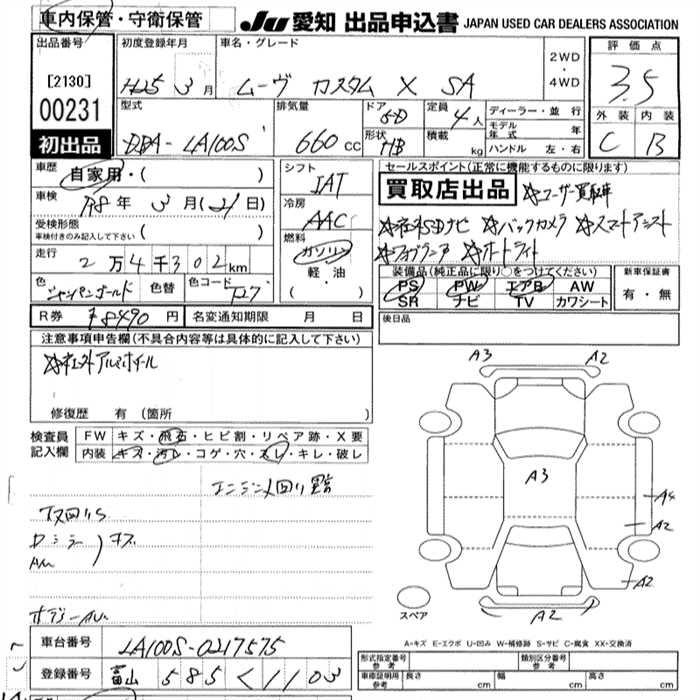 車内保管・守衛保管
JU 愛知 出品申込書 JAPAN USED CAR DEALERS ASSOCIATION
出品番号
[2130]
00231
初出品
初度登録年月
H25年3月
車名・グレード
ムーヴ カスタム X SA
2WD
・
4WD
評価点
3.5
外装 内装
C B
型式
DBA-LA100S
排気量
660cc
ドア
5D
形状
HB
定員
4人
積載
kg
ディーラー・並行
モデル年式 年
ハンドル 左・右
車歴
自家用・( )
車検
R8年3月(21日)
受検形態
車検付きのみ記入して下さい ( )
走行
2万4千302km
色
シャンパンゴールド
色替
色コード
T27
R券
¥8490円
名変通知期限 月 日
シフト
IAT
冷房
AAC
燃料
ガソリン
軽・油
・( )
セールスポイント(正常に機能するものに限ります)
買取店出品 ☆ユーザー買取車
☆社外SDナビ ☆バックカメラ ☆スマートアシスト
☆オートライト
装備品(純正品に限り○をつけてください)
PS PW エアB AW
SR ナビ TV カワシート
新車保証書
有・無
後日品
注意事項申告欄(不具合内容等は具体的に記入して下さい)
☆社外アルミホイール
修復歴 有(箇所
検査員
記入欄
FW キズ・飛石・ヒビ割・リペア跡・X要
内装 キズ・汚レ・コゲ・穴・スレ・キレ・破レ
A3 A2
A3
A4
A2
A2
A2
スペア
A-キズ E-エクボ U-凹み W-補修跡 S-サビ C-腐食 XX-交換済
車台番号
LA100S-0217575
登録番号
富山 585 く 1103
形式指定番号
参考
類別区分番号
参考
車検証記載
参考
長さ cm
幅 cm
高さ cm